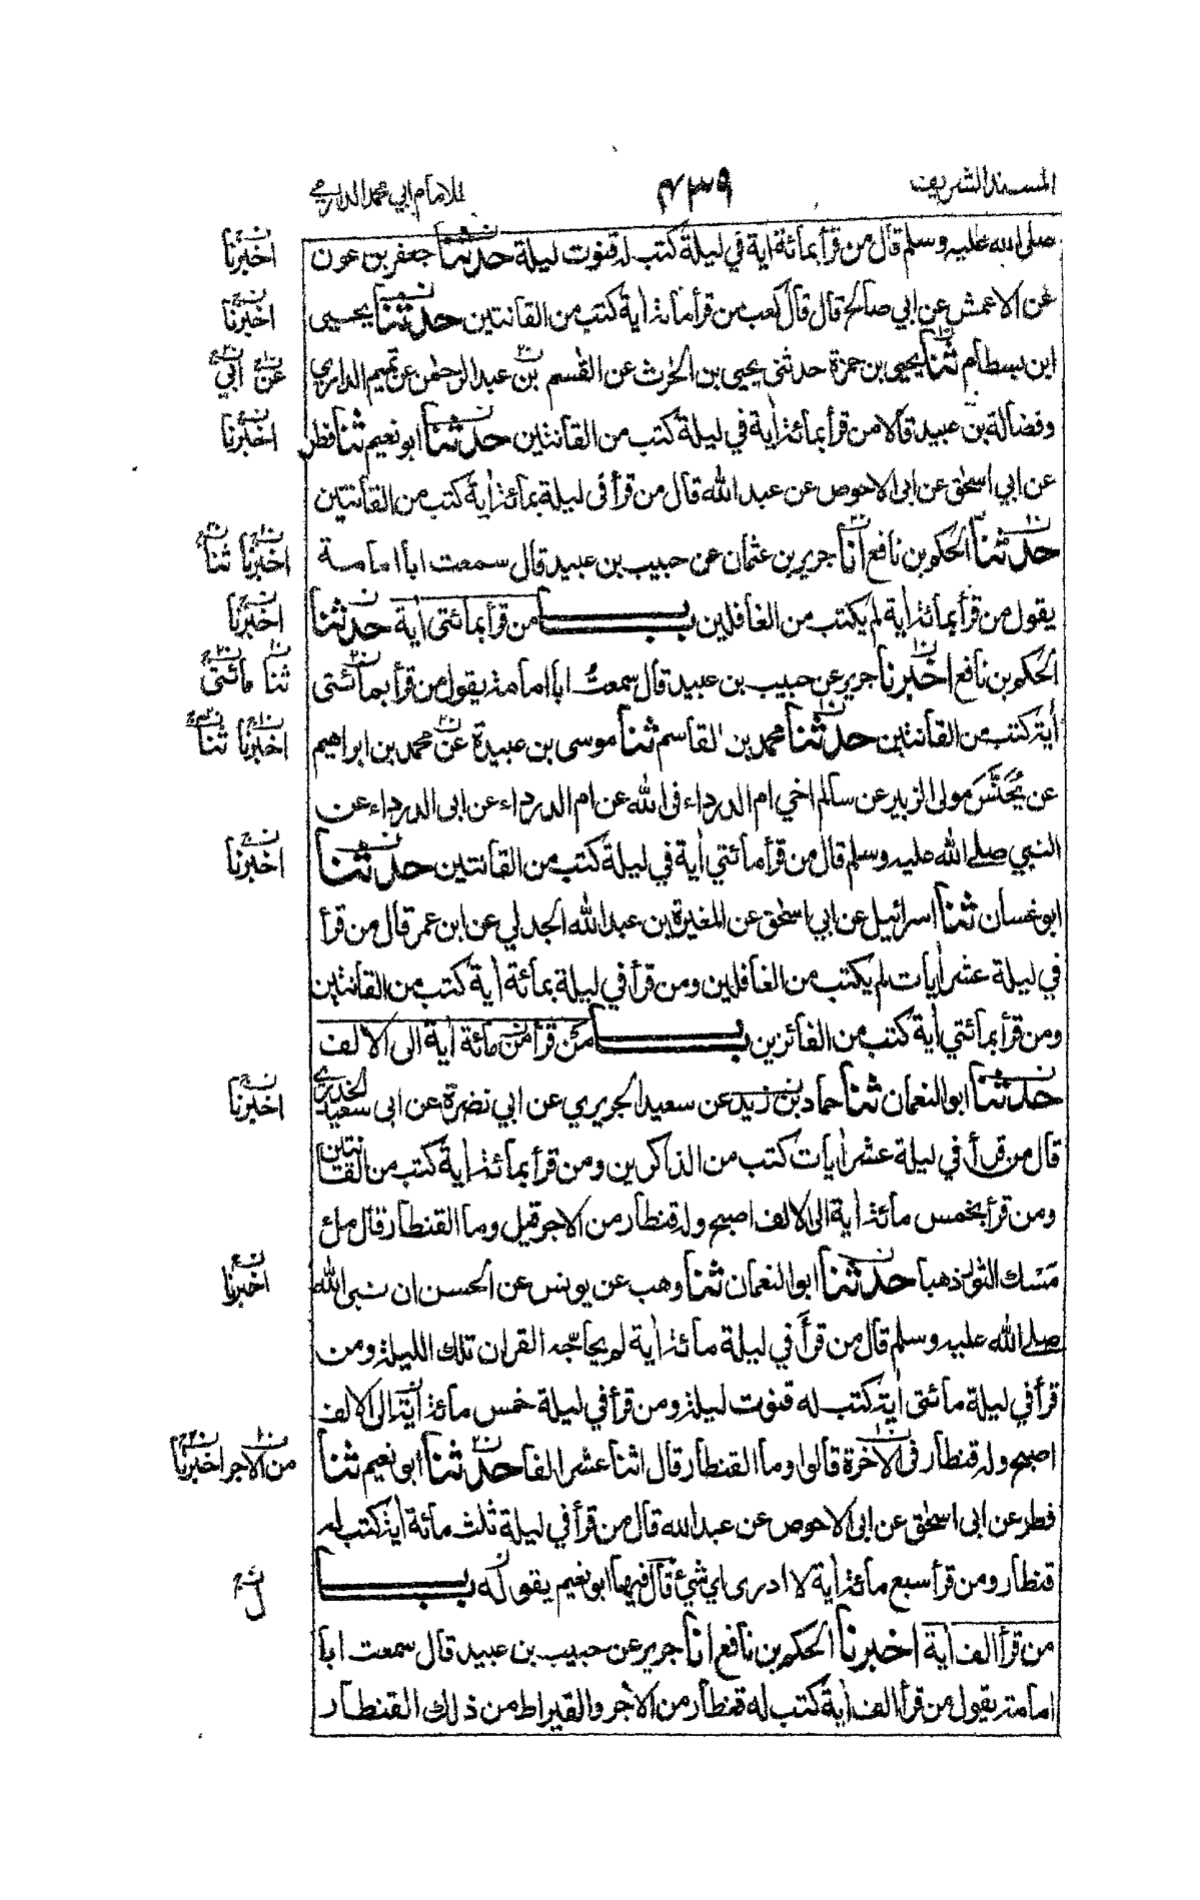 المسند الشريف ٤٣٩ للامام ابي محمد الدارمي
صلى الله عليه وسلم قال من قرأ بمائة اية في ليلة كتب له قنوت ليلة حدثنا جعفر بن عون
اخبرنا
عن الاعمش عن ابي صالح قال قال كعب من قرأ مائة اية كتب من القانتين حدثنا يحيى
اخبرنا
ابن بسطام ثنا يحيى بن حمزة حدثنى يحيى بن الحٰرث عن القٰسم بن عبد الرحمٰن عن تميم الداري
عن ابي
وفضالة بن عبيد قالا من قرأ بمائة اية في ليلة كتب من القانتين حدثنا ابو نعيم ثنا فطر
اخبرنا
عن ابي اسحٰق عن ابى الاحوص عن عبد الله قال من قرأ فى ليلة بمائة اية كتب من القانتين
حدثنا الحكم بن نافع انا جرير بن عثمان عن حبيب بن عبيد قال سمعت ابا امامة
اخبرنا ثنا
يقول من قرأ بمائة اية لم يكتب من الغافلين باب من قرأ بمائتى اية حدثنا
اخبرنا
الحكم بن نافع اخبرنا جرير عن حبيب بن عبيد قال سمعت ابا امامة يقول من قرأ بمائتى
ثنا مائتى
أية كتب من القانتين حدثنا محمد بن القاسم ثنا موسى بن عبيدة عن محمد بن ابراهيم
اخبرنا ثنا
عن يُحَنَّسَ مولى الزبير عن سالم اخي ام الدرداء فى الله عن ام الدرداء عن ابى الدرداء عن
النبي صلى الله عليه وسلم قال من قرأ مائتي أية في ليلة كتب من القانتين حدثنا
اخبرنا
ابو غسان ثنا اسرائيل عن ابي اسحٰق عن المغيرة بن عبد الله الجدلي عن ابن عمر قال من قرأ
في ليلة عشر أيات لم يكتب من الغافلين ومن قرأ في ليلة بمائة أية كتب من القانتين
ومن قرأ بمائتي أية كتب من الفائزين باب من قرأ من مائة اية الى الالف
حدثنا ابو النعمان ثنا حماد بن زيد عن سعيد الجريري عن ابي نضرة عن ابى سعيد الخدري
اخبرنا
قال من قرأ في ليلة عشر أيات كتب من الذاكرين ومن قرأ بمائة اية كتب من القانتين
ومن قرأ بخمس مائة اية الى الالف اصبح وله قنطار من الاجر قيل وما القنطار قال ملئ
مَسْك الثور ذهبا حدثنا ابو النعمان ثنا وهب عن يونس عن الحسن ان نبى الله
اخبرنا
صلى الله عليه وسلم قال من قرأ في ليلة مائة أية لم يحاجّه القران تلك الليلة ومن
قرأ في ليلة مائتى أية كتب له قنوت ليلة ومن قرأ في ليلة خمس مائة اية الى الالف
اصبح وله قنطار فى الاخرة قالوا وما القنطار قال اثنا عشر الفا حدثنا ابو نعيم ثنا
من الاجر اخبرنا
فطر عن ابى اسحٰق عن ابى الاحوص عن عبد الله قال من قرأ في ليلة ثلث مائة اية كتب له
قنطار ومن قرأ سبع مائة اية لا ادرى اي شئ قال فيها ابو نعيم يقوله باب
من قرأ الف اية اخبرنا الحكم بن نافع انا جرير عن حبيب بن عبيد قال سمعت ابا
امامة يقول من قرأ الف أية كتب له قنطار من الاجر والقيراط من ذلك القنطار